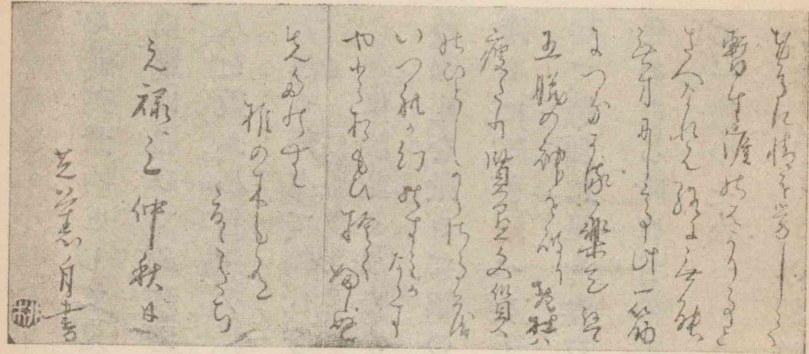 花鳥に情を労して
暫生涯のはかり事と
さへなれは終に無能
無才にして此一筋
につなかる樂天は
五臓の神を破り老杜ハ
痩たり賢愚文質
のひとしからさるも
いつれか幻のすみかならす
やとおもひ捨てふしぬ
先たのむ
椎の木も有
夏こたち
元禄三仲秋日
芭蕉自書